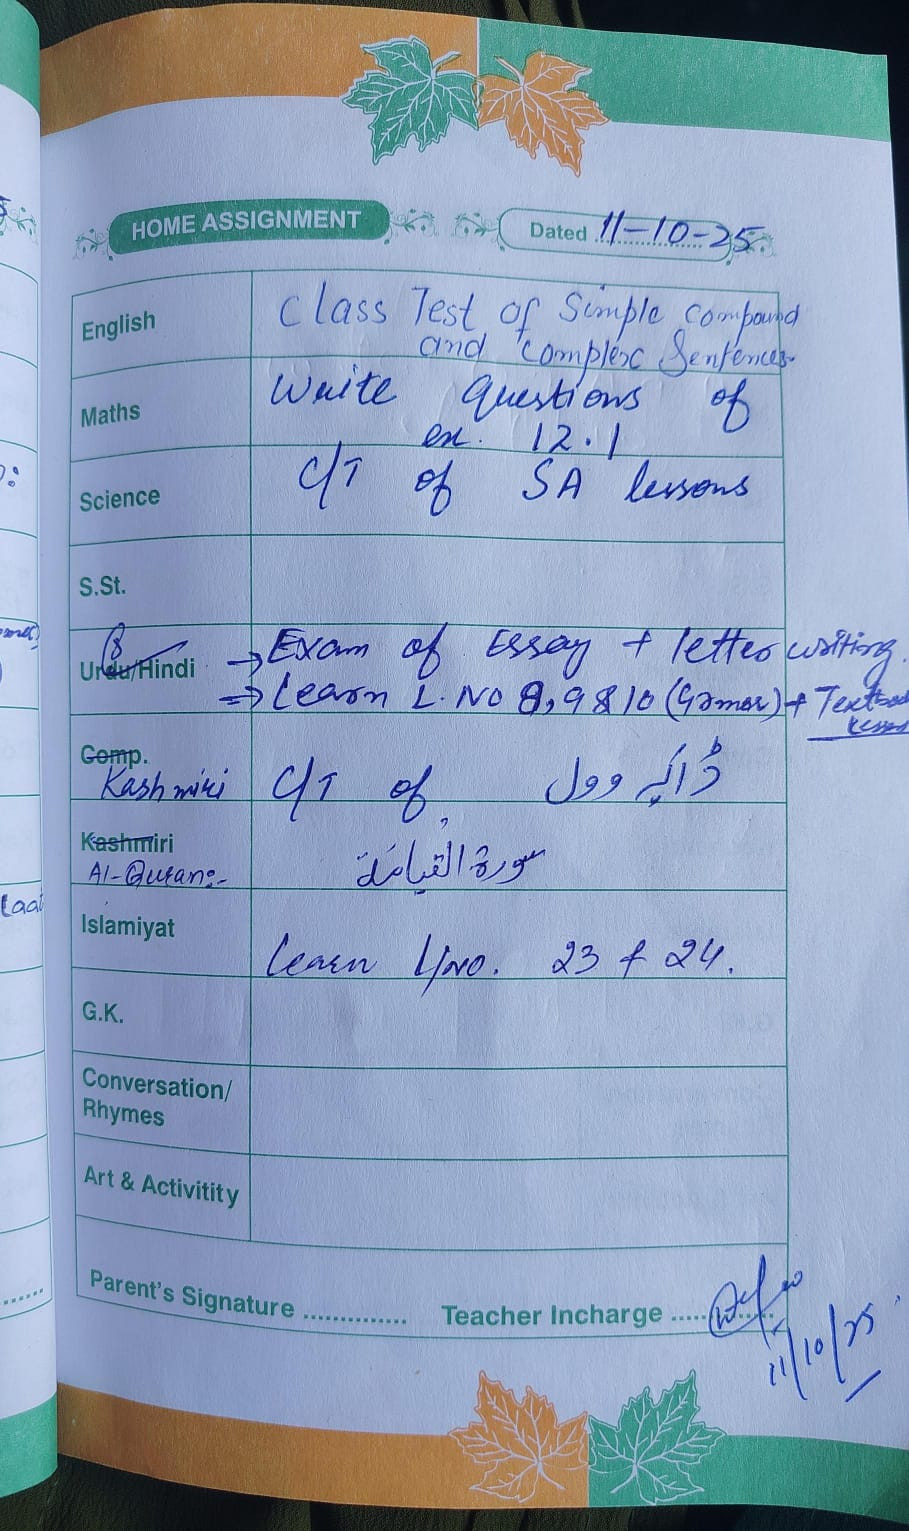 HOME ASSIGNMENT
Dated 11-10-25
English
Class Test of Simple compound
and complex Sentences
Maths
Write questions of
ex. 12.1
Science
C/T of SA lessons
S.St.
Urdu/Hindi
→ Exam of Essay + letter writing.
⇒ Learn L.NO 8,9 & 10 (Gramar) + Textbook
lesson
Comp.
Kashmiri
C/T of ڈاکہٕ وول
Kashmiri
Al-Quran:-
سورۃ القیامۃ
Islamiyat
learn L/No. 23 & 24.
G.K.
Conversation/
Rhymes
Art & Activitity
Parent's Signature .............. Teacher Incharge ......
11/10/25